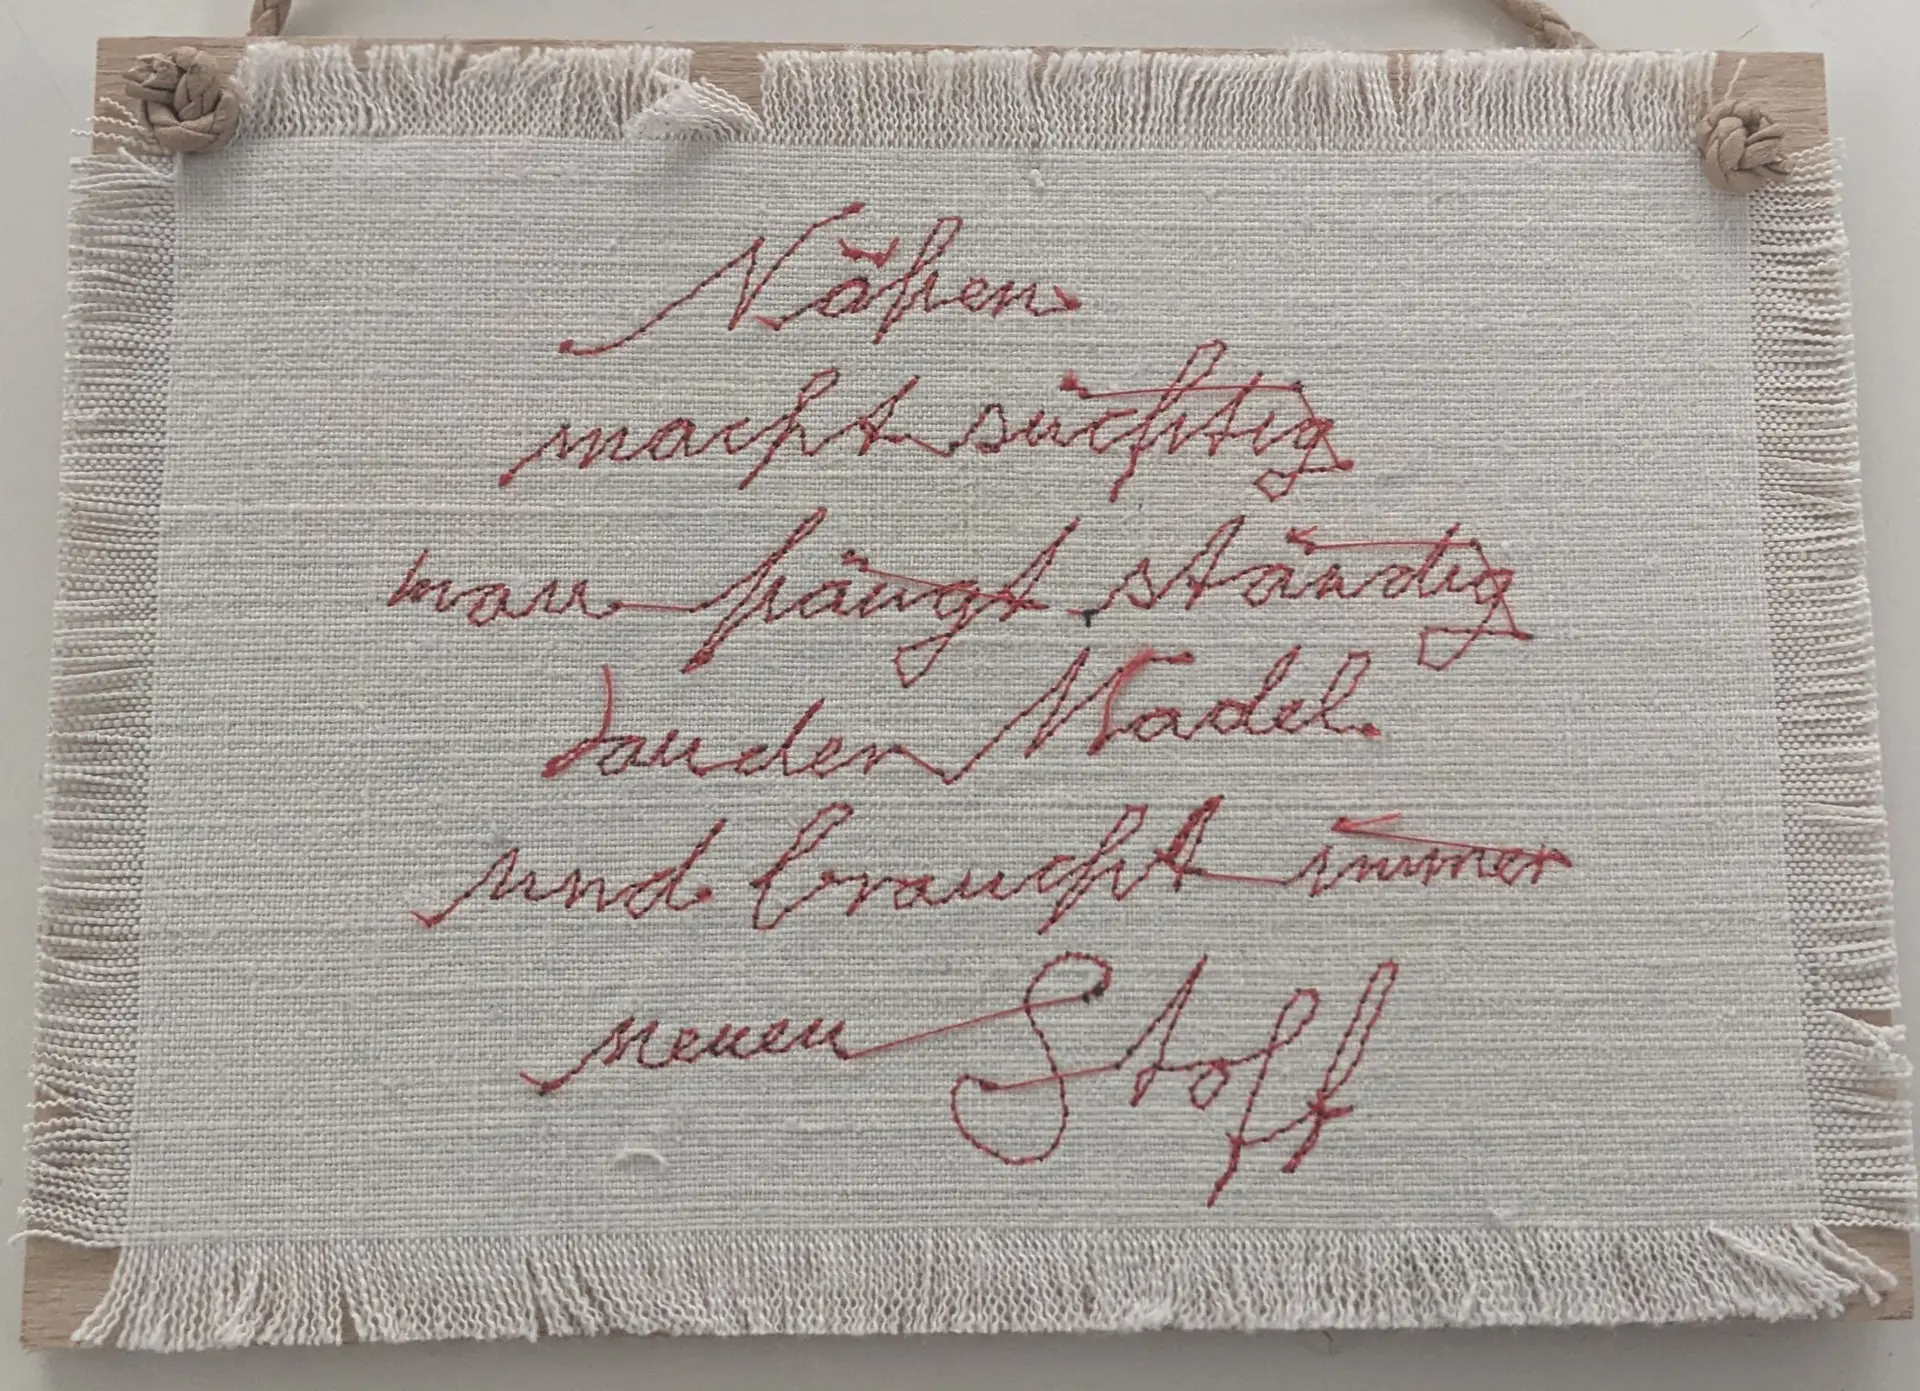 Nähen
macht süchtig
man hängt ständig
an der Nadel
und braucht immer
neuen Stoff